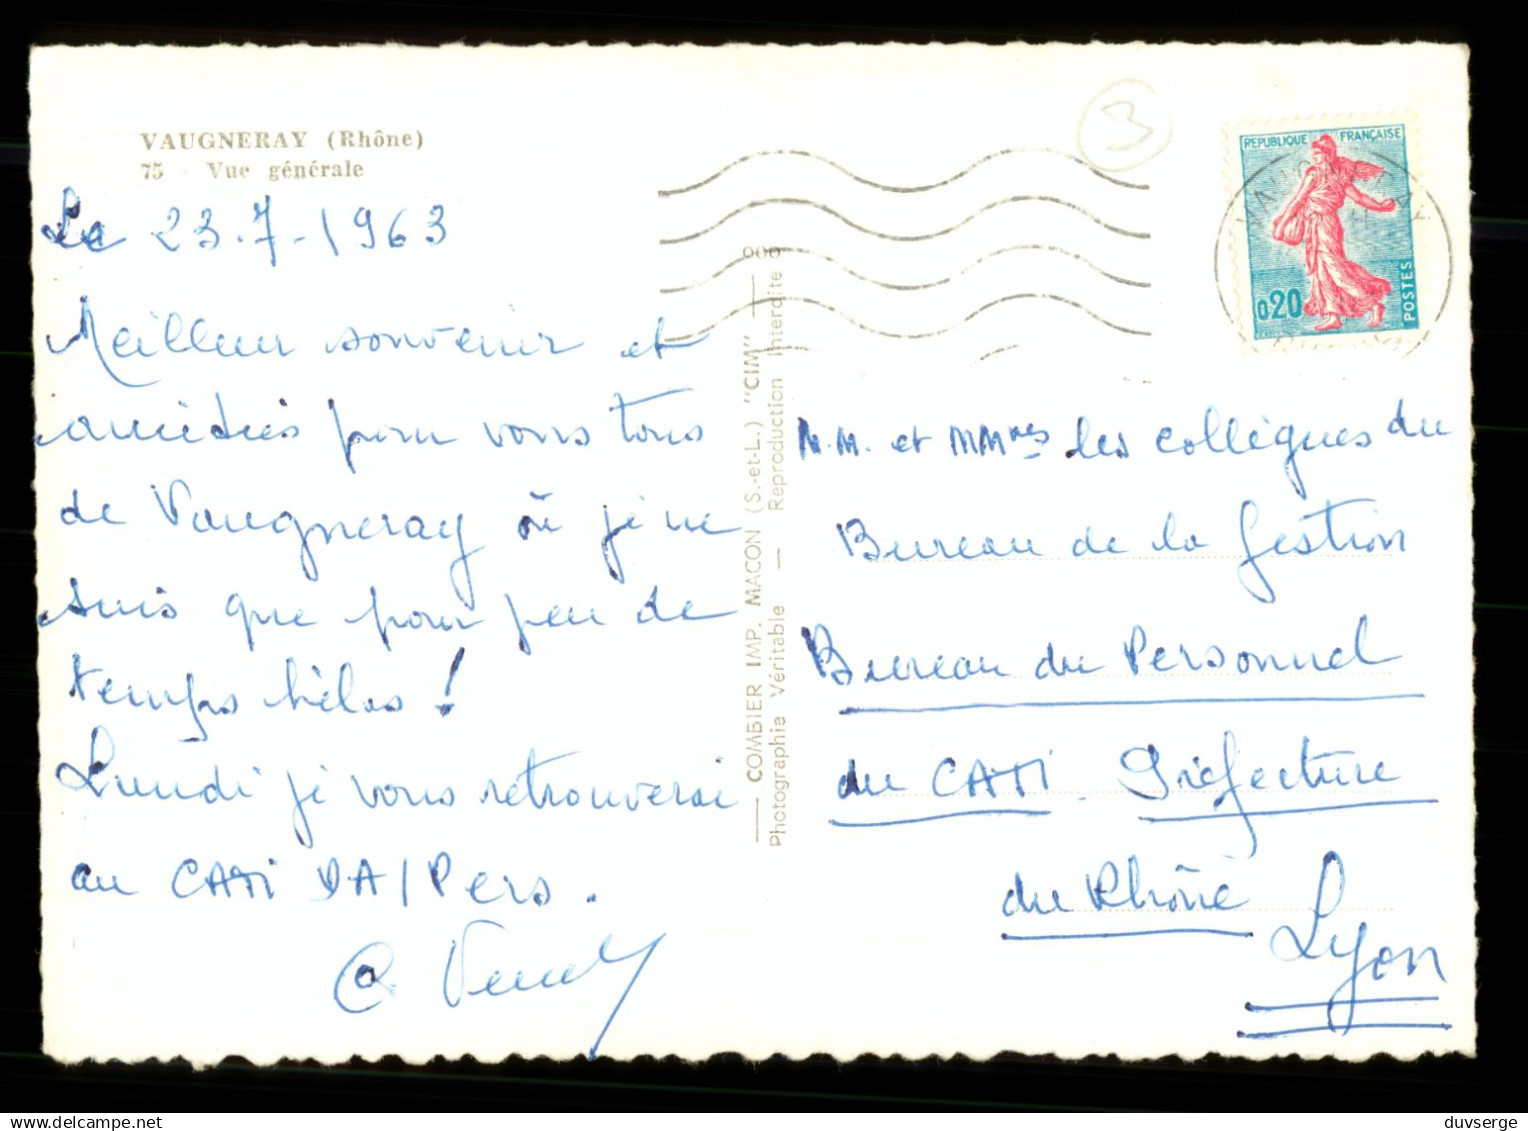 VAUGNERAY (Rhône)
75 - Vue générale
Le 23.7-1963
Meilleur souvenir et
amitiés pour vous tous
de Vaugneray où je ne
suis que pour peu de
temps hélas !
Lundi je vous retrouverai
au CATI DA/Pers.
COMBIER IMP. MACON (S.-et-L.) "CIM"
Photographie Véritable — Reproduction Interdite
3
REPUBLIQUE FRANÇAISE
0,20
POSTES
VAUGNERAY
M.M. et MMmes les collègues du
Bureau de la Gestion
Bureau du Personnel
du CATI. Préfecture
du Rhône
Lyon
delcampe.net
duvserge